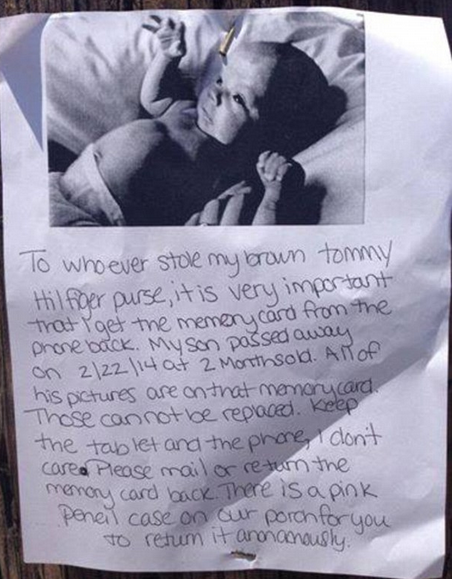 To whoever stole my brown tommy
Hilfiger purse, it is very important
that I get the memory card from the
phone back. My son passed away
on 2/22/14 at 2 Months old. All of
his pictures are on that memory card.
Those cannot be replaced. Keep
the tablet and the phone, I don't
care. Please mail or return the
memory card back. There is a pink
pencil case on our porch for you
to return it annonamously.